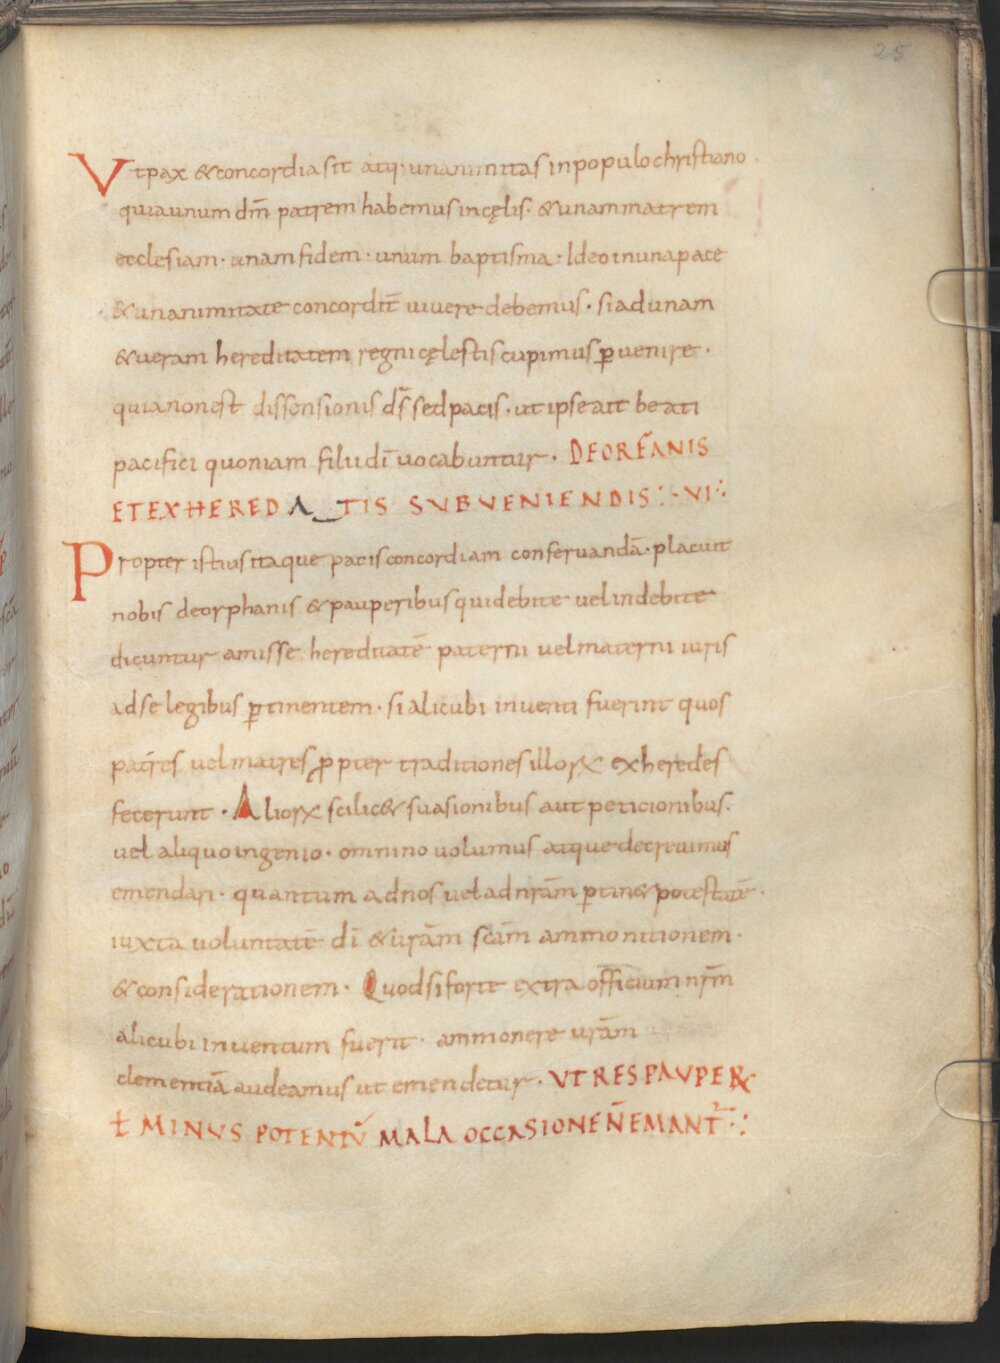 25
Vt pax & concordia sit atq; unanimitas in populo christiano.
quia unum dm̄ patrem habemus in cęlis· & unam matrem
ecclesiam· unam fidem· unum baptisma· Ideo in una pace
& unanimitate concordit̄ uiuere debemus· si ad unam
& ueram hereditatem regni cęlestis cupimus ꝑuenire·
quia non est dissensionis ds̄ sed pacis· ut ipse ait beati
pacifici quoniam filii dī uocabuntur· DE ORFANIS
ET EXHEREDATIS SUBVENIENDIS· VI·
Propter istius itaque pacis concordiam conseruandā· placuit
nobis de orphanis & pauperibus qui debite uel indebite
dicuntur amisse hereditatē paterni uel materni iuris
ad se legibus ꝑtinentem· si alicubi inuenti fuerint quos
patres uel matres ꝓpter traditiones illoꝝ exheredes
fecerunt· Alioꝝ scilic& suasionibus aut peticionibus.
uel aliquo ingenio· omnino uolumus atque decreuimus
emendari· quantum ad nos uel ad nrām ꝑtin& potestatē·
iuxta uoluntatē dī & urām scām ammonitionem·
& considerationem· Quod si forte extra officium nrm̄
alicubi inuentum fuerit· ammonere urām
clementiā audeamus ut emendetur· VT RES PAVPERꝝ
ł MINVS POTENTŪ MALA OCCASIONE N̄ EMANT̄·: